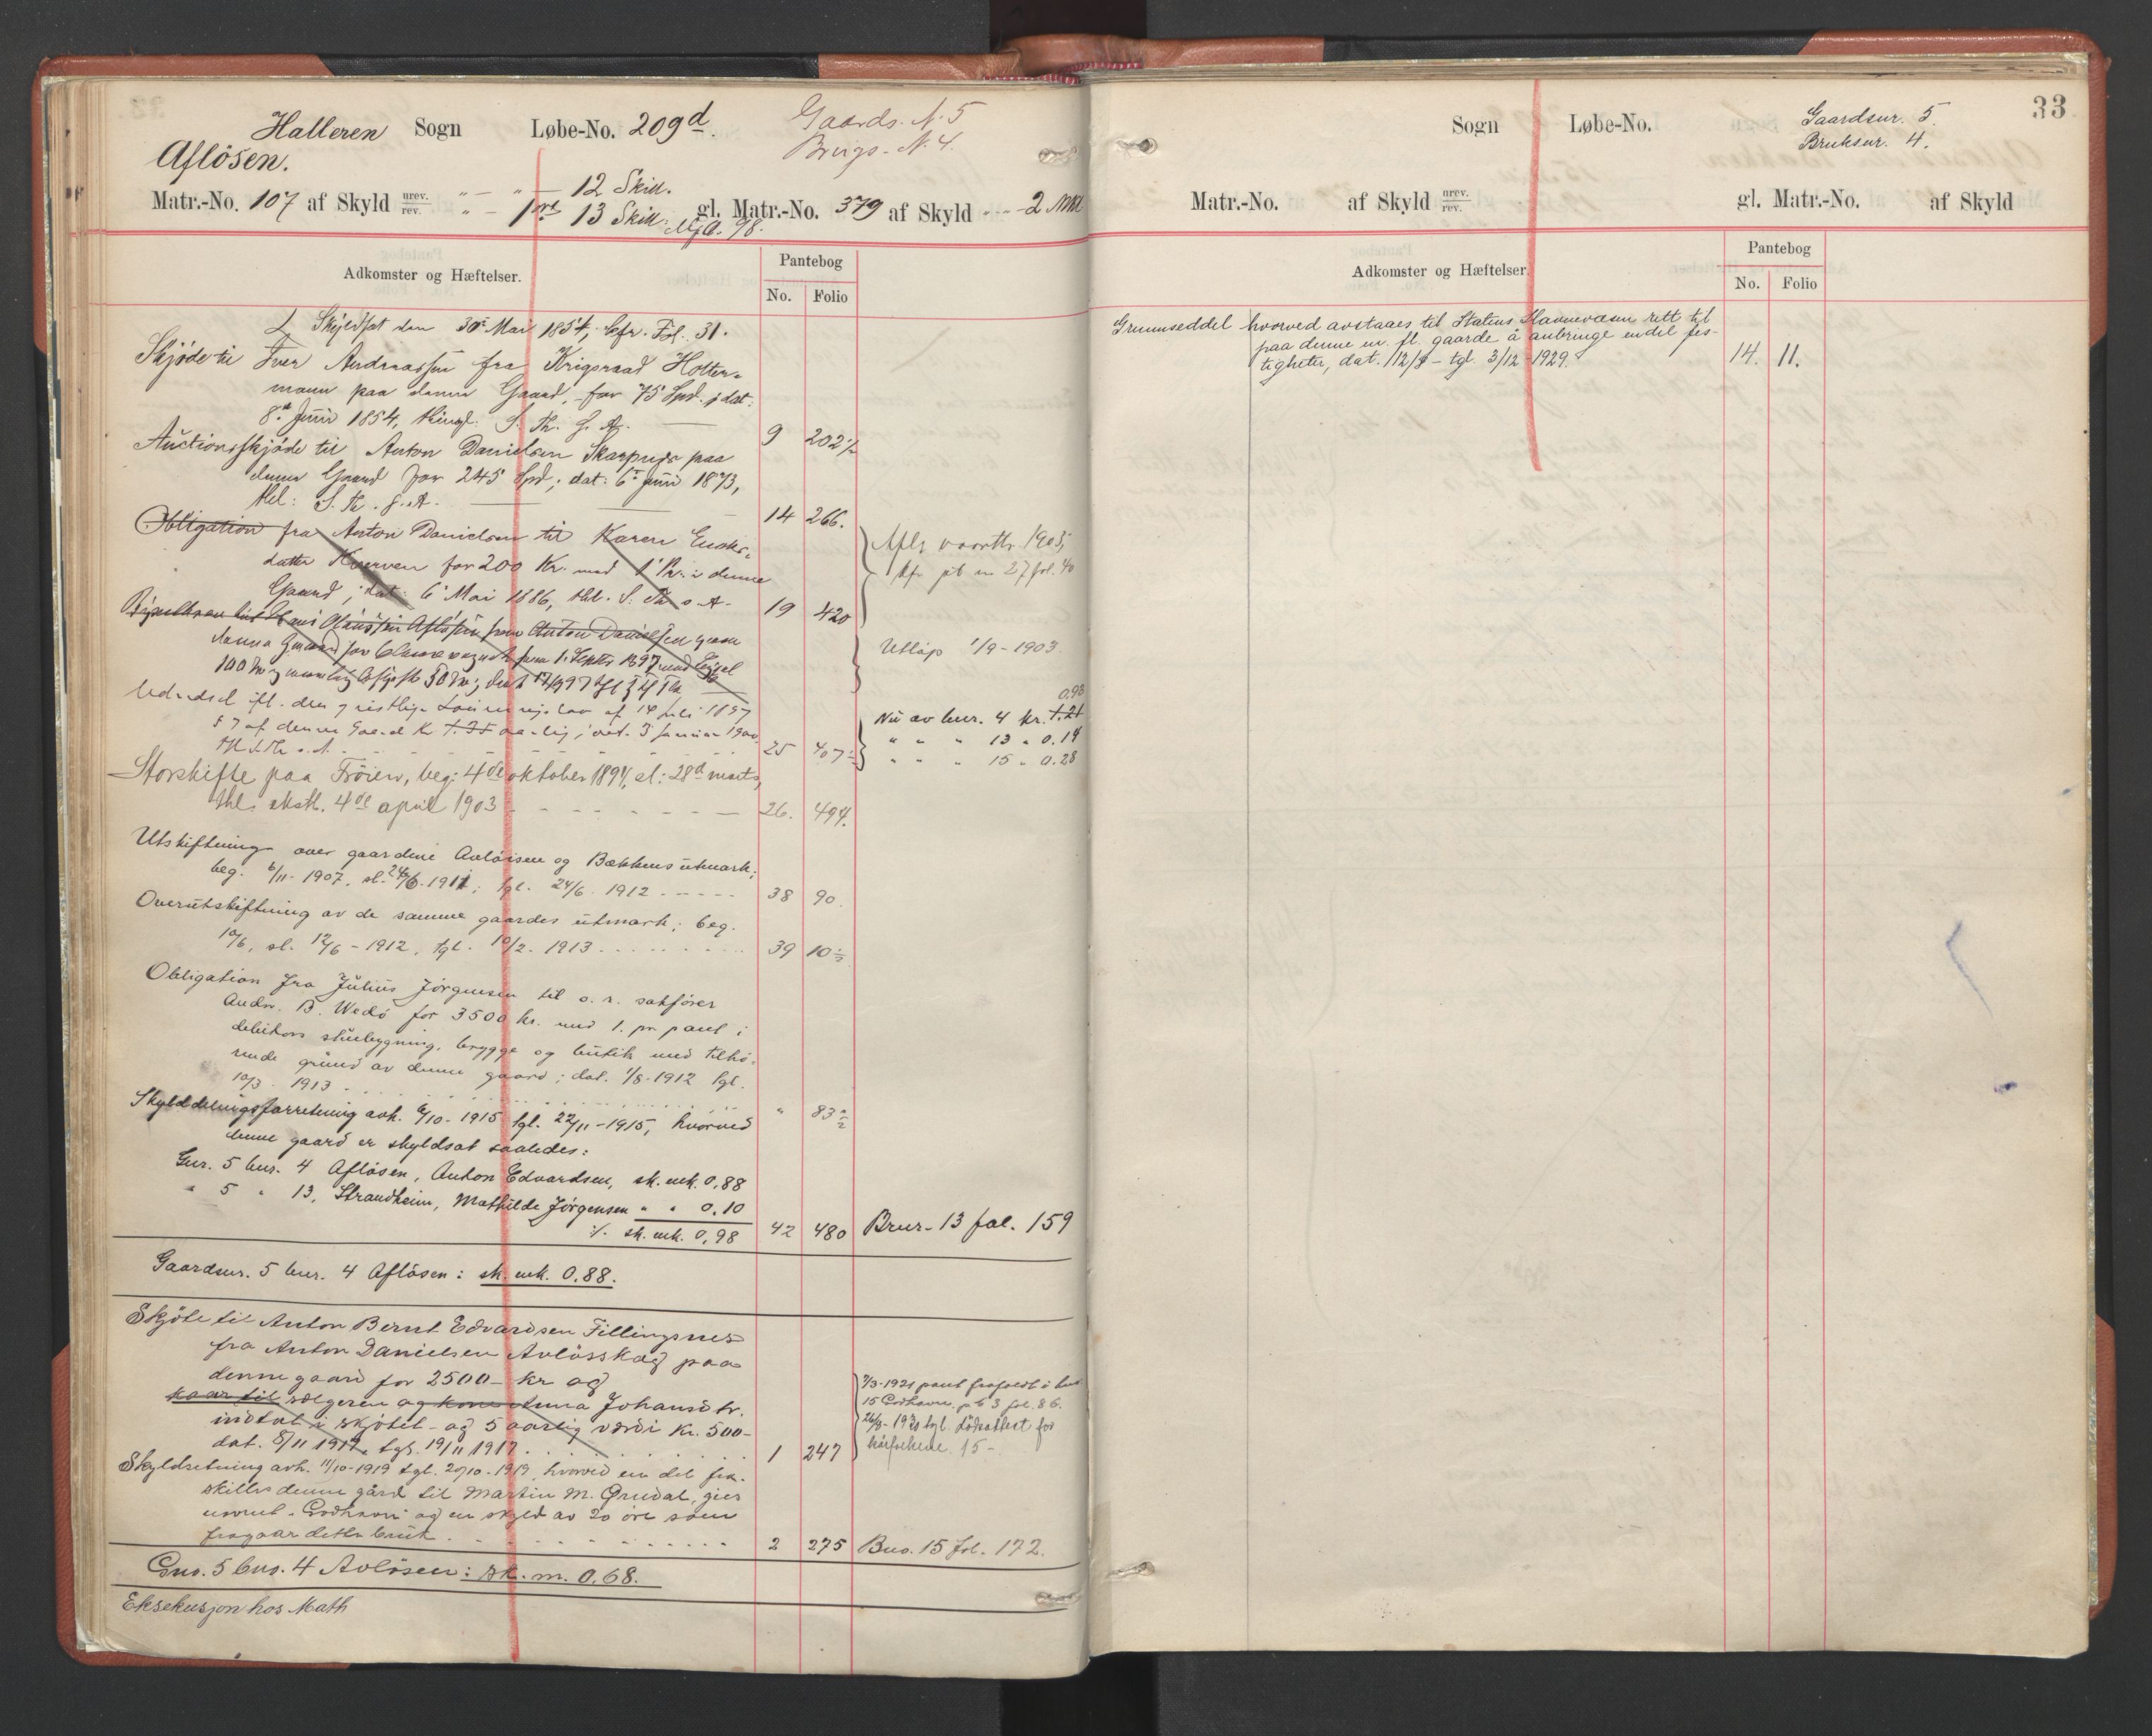 Halleren Sogn Løbe-No. 209d. Gaards-N. 5
Aflösen. Brugs-N. 4.
Matr.-No. 107 af Skyld urev. " - " - 12 Skill.
rev. " - 1 ort 13 Skill. gl. Matr.-No. 379 af Skyld - 2 Mkl
0.98.
Adkomster og Hæftelser. Pantebog
No. Folio
Skyldsat den 30te Mai 1854, Cfr. Fol. 31.
Skjøde til Iver Andreassen fra Krigsraad Holter-
mann paa denne Gaard, for 75 Spd. dat:
8de Juni 1854, thingl. S. Th. g. A. 9 202 1/2
Auctionsskjøde til Anton Danielsen Skarpnes paa
denne Gaard for 245 Spd; dat: 6te Juni 1873,
thl: S. Th. g. A. 14 266.
Obligation fra Anton Danielsen til Karen Enoks-
datter Kverven for 200 Kr. med 1 Pr. i denne
Gaard; dat. 6 Mai 1886, thl. S. Th. s. A. 19 420
Afl. 1903,
pb no 27 fol. 40
Bygselbrev til Hans Olaussen Aflösen fra Anton Danielsen paa
denne Gaard for 6 Aar regnet fra 1. Septr 1897 med
100 Kr og aarlig Afgift 50 Kr, dat
Utløp 1/9 - 1903.
af 14 Juli 1897
§ 7 af denne Gaard Kr 1.21 aarlig; dat. 5 Januar 1900
25 407
0.93
Nu av bnr. 4 kr. 1.21
" " " 13 " 0.14
" " " 15 " 0.28
Storskifte paa Fröien, beg: 4de oktober 1894, sl: 28d marts,
thl: ekstl. 4de april 1903 - - - 26. 494.
Utskiftning over gaardene Avlöisen og Bækkens utmark;
beg. 6/11 - 1907, sl. 24/6 - 1911; tgl. 24/6 1912 - - - 38 90.
Overutskiftning av de samme gaardes utmark; beg.
10/6, sl. 12/6 - 1912, tgl. 10/2. 1913 . . . . 39 10 1/2
Obligation fra Julius Jörgensen til o. r. sakförer
Andr. B. Wedö for 3500 kr. med 1. pr. pant i
debitors stuebygning, brygge og butik med tilhö-
rende grund av denne gaard; dat. 1/8 - 1912 tgl.
10/3 - 1913 . . . . " 83 1/2
Skylddelingsforretning avh. 6/10 - 1915 tgl. 22/11 - 1915, hvorved
denne gaard er skyldsat saaledes:
Gnr. 5 bnr. 4 Aflösen, Anton Edvardsen, sk. mk. 0,88
" 5 " 13, Strandheim, Mathilde Jörgensen " " 0.10
:/. sk. mk. 0,98 42 480 Brnr- 13 fol. 159
Gaardsnr. 5 bnr. 4 Aflösen: sk. mk. 0.88.
Skjöte til Anton Bernt Edvardsen Fillingsnes
fra Anton Danielsen Avlösskag paa
denne gaard for 2500 - kr og
kaar til sælgeren og kone Anna Johansdtr.
indtat i skjötet - og 5 aarlig værdi kr. 500 -
dat. 8/11 1917, tgl. 19/11 1917 . . . . 1 247
7/3 - 1921 pant frafaldt i bnr
15 Godhavn, pb 3 fol. 86.
tgl. dödsattest for
kårfolkene 15 -
Skyldretning avh. 11/10 - 1919 tgl. 20/10 - 1919, hvorved en del fra-
skilles denne gård til Martin M. Grudal, gies
navnet - Godhavn og en skyld av 20 öre som
fragaar dette bruk . . . . 2 275 Bno. 15 fol. 172.
Gno. 5 bno. 4 Avlösen: sk. m. 0.68.
Eksekusjon hos Math
33
Sogn Løbe-No. Gaardsnr. 5.
Bruksnr. 4.
Matr.-No. af Skyld urev. rev. gl. Matr.-No. af Skyld
Adkomster og Hæftelser. Pantebog
No. Folio
Grunnseddel hvorved avstaaes til Statens Havnevæsen rett til
paa denne m. fl. gaarde å anbringe endel fes-
tigheter, dat. 12/8 - tgl. 3/12 - 1929. 14. 11.